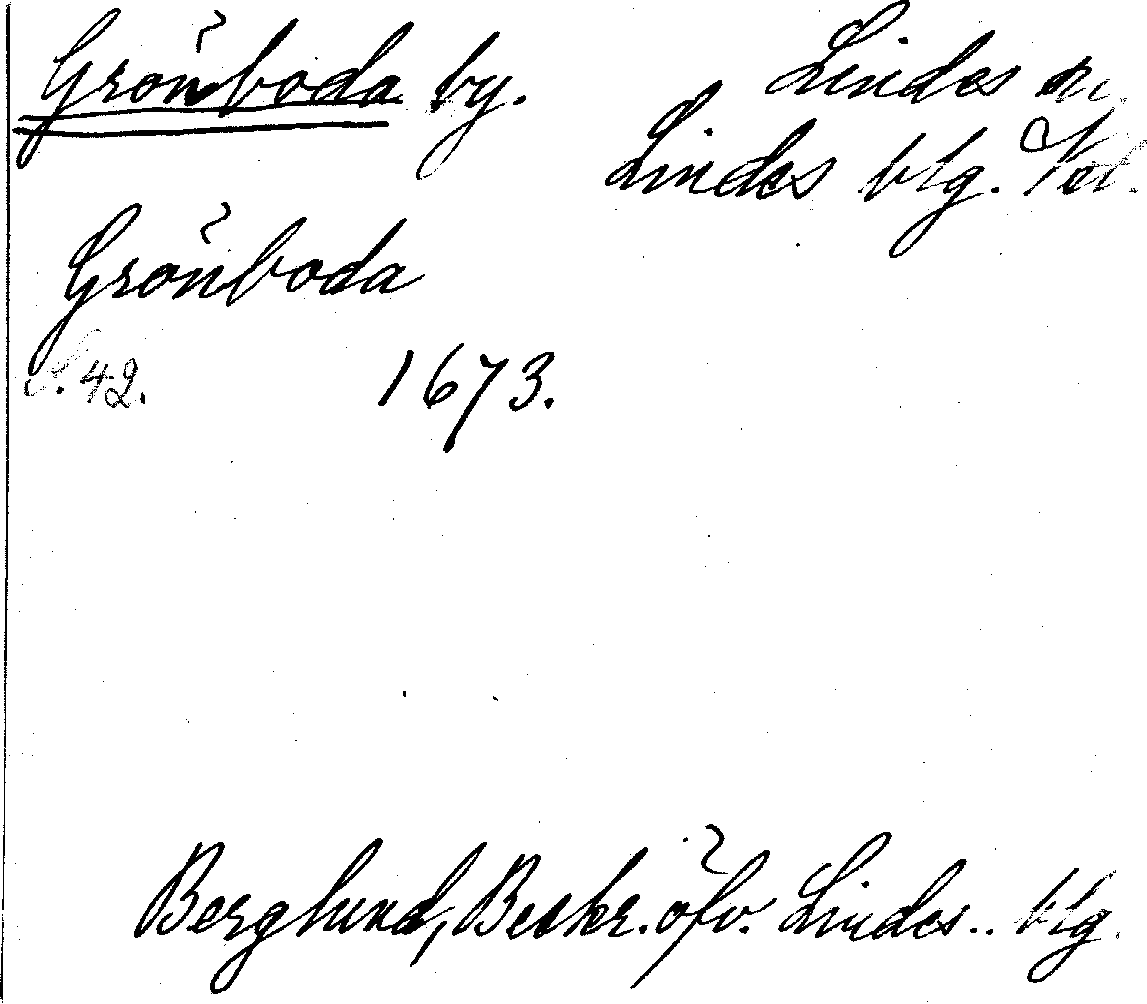 Grönboda by. Lindes sn.
Lindes blg. Vbt.
Grönboda
S. 42. 1673.
Berglund, Beskr. öfv. Lindes .. blg.